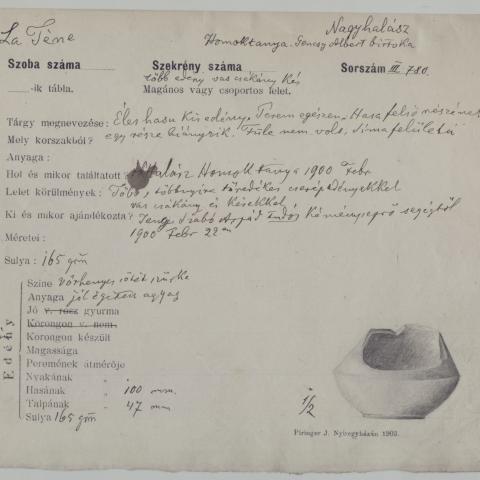 La Tène
Nagyhalász
Homoktanya. Gencsy Albert birtoka
Szoba száma
Szekrény száma
Sorszám III 780.
több edény vas csákány kés
-ik tábla.
Magános vagy csoportos lelet.
Tárgy megnevezése: Éles hasu kis edény. Perem egészen. Hasa felső részének
Mely korszakból? egy része hiányzik. Füle nem volt, sima felületü
Anyaga:
Hol és mikor találtatott? Halász Homoktanya 1900 Febr
Lelet körülmények: Több, többnyire töredékes cserép edényekkel
vas csákány és késekkel
Ki és mikor ajándékozta? Szabó Árpád kéményseprő segédtől
Méretei: 1900 Febr 22én
Sulya: 165 grm
Edény
Szine vörhenyes sötét szürke
Anyaga jól égetett agyag
Jó v. rosz gyurma
Korongon v. nem.
Korongon készült
Magassága
Peremének átmérője
Nyakának "
Hasának " 100 mm.
Talpának " 47 mm
Sulya 165 grm
1/2
Piringer J. Nyiregyházán 1903.